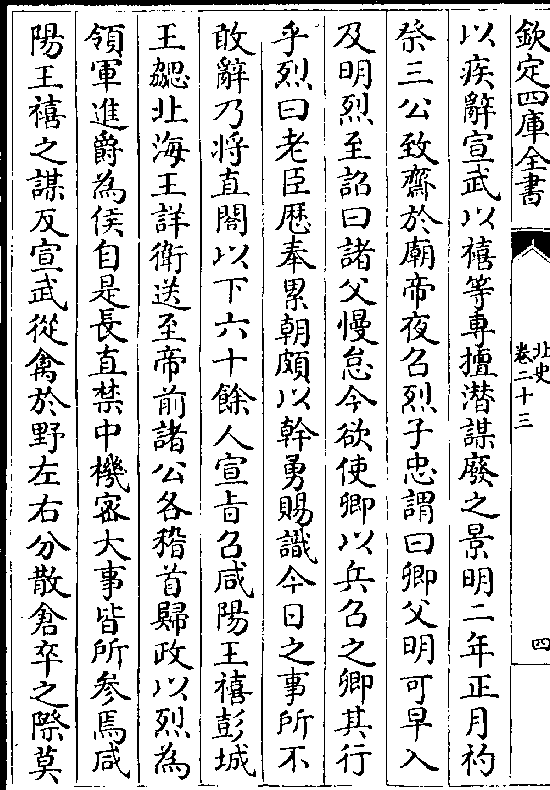 欽定四庫全書
北史
卷二十三
四
以疾辭宣武以禧等專擅潛謀廢之景明二年正月礿
祭三公致齋於廟帝夜召烈子忠謂曰卿父明可早入
及明烈至詔曰諸父慢怠今欲使卿以兵召之卿其行
乎烈曰老臣歴奉累朝頗以幹勇賜識今日之事所不
敢辭乃将直閤以下六十餘人宣㫖召咸陽王禧彭城
王勰北海王詳衛送至帝前諸公各稽首歸政以烈為
領軍進爵為侯自是長直禁中機宻大事皆所參焉咸
陽王禧之謀反宣武從禽於野左右分散倉卒之際莫